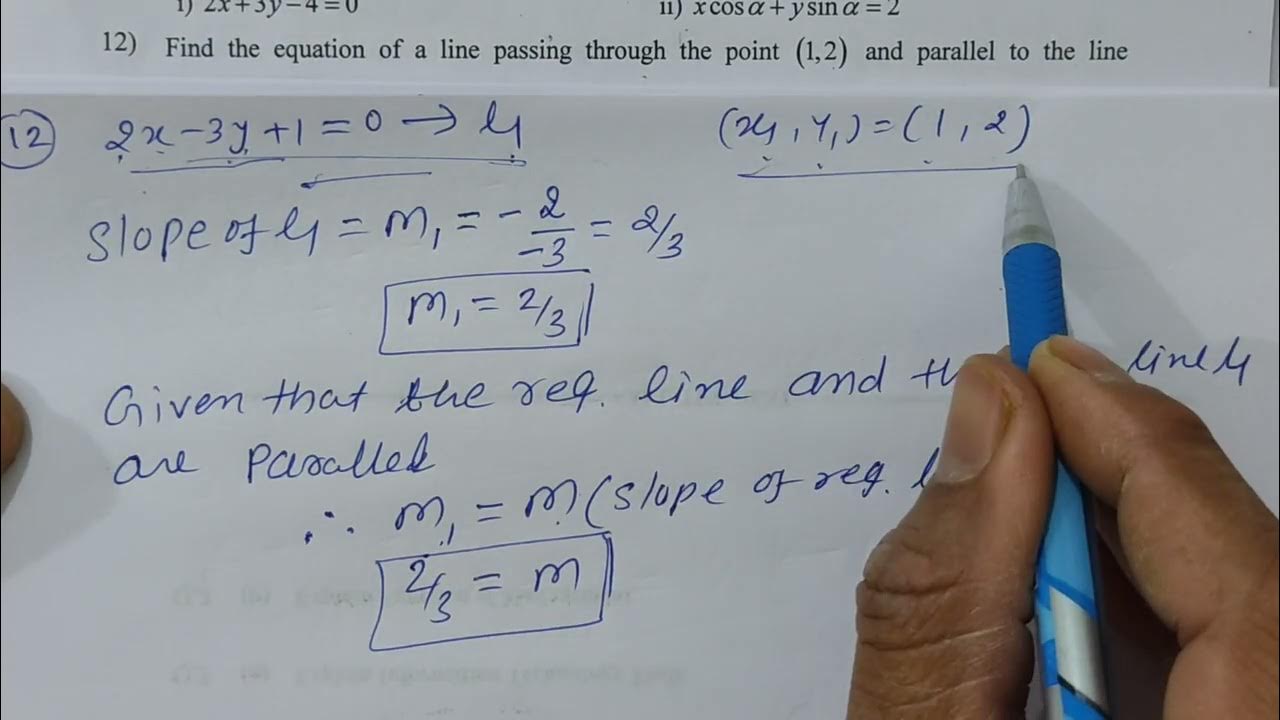 i) 2x+3y−4=0 ii) x cos α + y sin α = 2
12) Find the equation of a line passing through the point (1,2) and parallel to the line
12 2x −3y +1 = 0 → L1 (x1, y1) = (1, 2)
Slope of L1 = m1 = − 2/−3 = 2/3
m1 = 2/3
Given that the req. line and line L1
are parallel
∴ m1 = m (slope of req.
2/3 = m